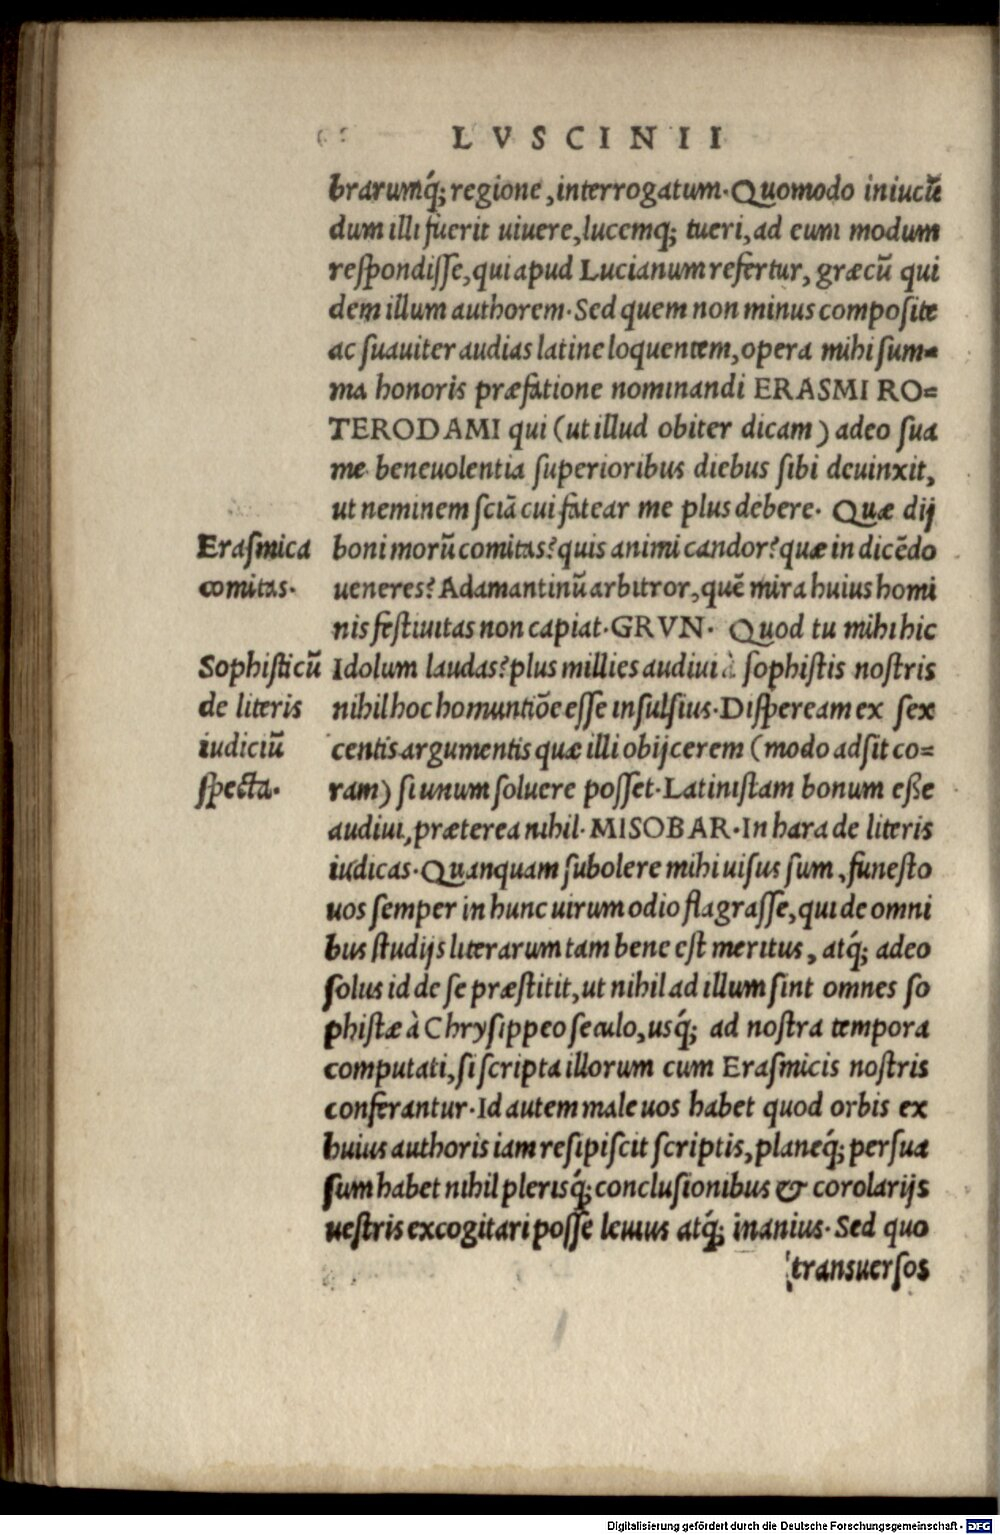 LVSCINII
brarumq́; regione, interrogatum. Quomodo iniucū
dum illi fuerit uiuere, lucemq; tueri, ad eum modum
respondisse, qui apud Lucianum refertur, græcū qui
dem illum authorem. Sed quem non minus composite
ac suauiter audias latine loquentem, opera mihi sum-
ma honoris præfatione nominandi ERASMI RO=
TERODAMI qui (ut illud obiter dicam) adeo sua
me beneuolentia superioribus diebus sibi deuinxit,
ut neminem sciā cui fatear me plus debere. Quæ dij
Erasmica
comitas.
boni morū comitas? quis animi candor? quæ in dicēdo
ueneres? Adamantinū arbitror, quē mira huius homi
nis festiuitas non capiat. GRVN. Quod tu mihi hic
Sophisticū
de literis
iudiciū
specta.
Idolum laudas? plus millies audiui à sophistis nostris
nihil hoc homuntiōe esse insulsius. Dispeream ex sex
centis argumentis quæ illi obijcerem (modo adsit co=
ram) si unum soluere posset. Latinistam bonum eße
audiui, præterea nihil. MISOBAR. In hara de literis
iudicas. Quanquam subolere mihi uisus sum, funesto
uos semper in hunc uirum odio flagrasse, qui de omni
bus studijs literarum tam bene est meritus, atq́; adeo
solus id de se præstitit, ut nihil ad illum sint omnes so
phistæ à Chrysippeo seculo, usq́; ad nostra tempora
computati, si scripta illorum cum Erasmicis nostris
conferantur. Id autem male uos habet quod orbis ex
huius authoris iam resipiscit scriptis, planeq́; persua
sum habet nihil plerisq́; conclusionibus & corolarijs
uestris excogitari posse leuius atq́; inanius. Sed quo
transuersos
Digitalisierung gefördert durch die Deutsche Forschungsgemeinschaft - DFG